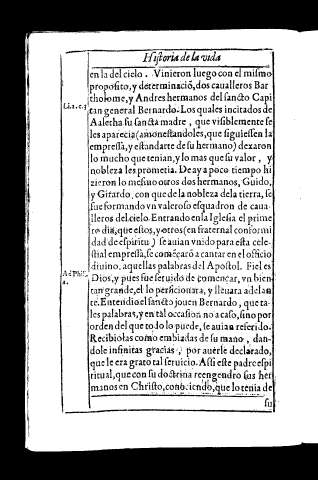 Historia de la vida
en la del cielo. Vinieron luego con el mismo
proposito, y determinació, dos caualleros Bar
tholome, y Andres hermanos del sancto Capi
tan general Bernardo. Los quales incitados de
Li.1.c.3
Aaletha su sancta madre, que visiblemente se
les aparecia (amonestandoles, que siguiessen la
empressa, y estandarte de su hermano) dexaron
lo mucho que tenian, y lo mas que su valor, y
nobleza les prometia. De ay a poco tiempo hi
zieron lo mesmo otros dos hermanos, Guido,
y Girardo, con que de la nobleza dela tierra, se
fue formando vn valeroso esquadron de caua
lleros del cielo. Entrando en la Iglesia el prime
ro dia, que estos, y otros (en fraternal conformi
dad de espiritu) se auian vnido para esta cele-
stial empressa, se comēçaró a cantar en el officio
diuino, aquellas palabras del Apostol. Fiel es
Ad Phili.
Dios, y pues fue seruido de començar, vn bien
tan grande, el lo perficionara, y lleuara adelan
te. Entendio el sancto jouen Bernardo, que ta-
les palabras, y en tal occasion no acaso, sino por
orden del que todo lo puede, se auian referido.
Recibiolas como embiadas de su mano, dan-
dole infinitas gracias, por auerle declarado,
que le era grato tal seruicio. Assi este padre espi
ritual, que con su doctrina reengendro sus her
manos en Christo, conociendo, que lo tenia de
su